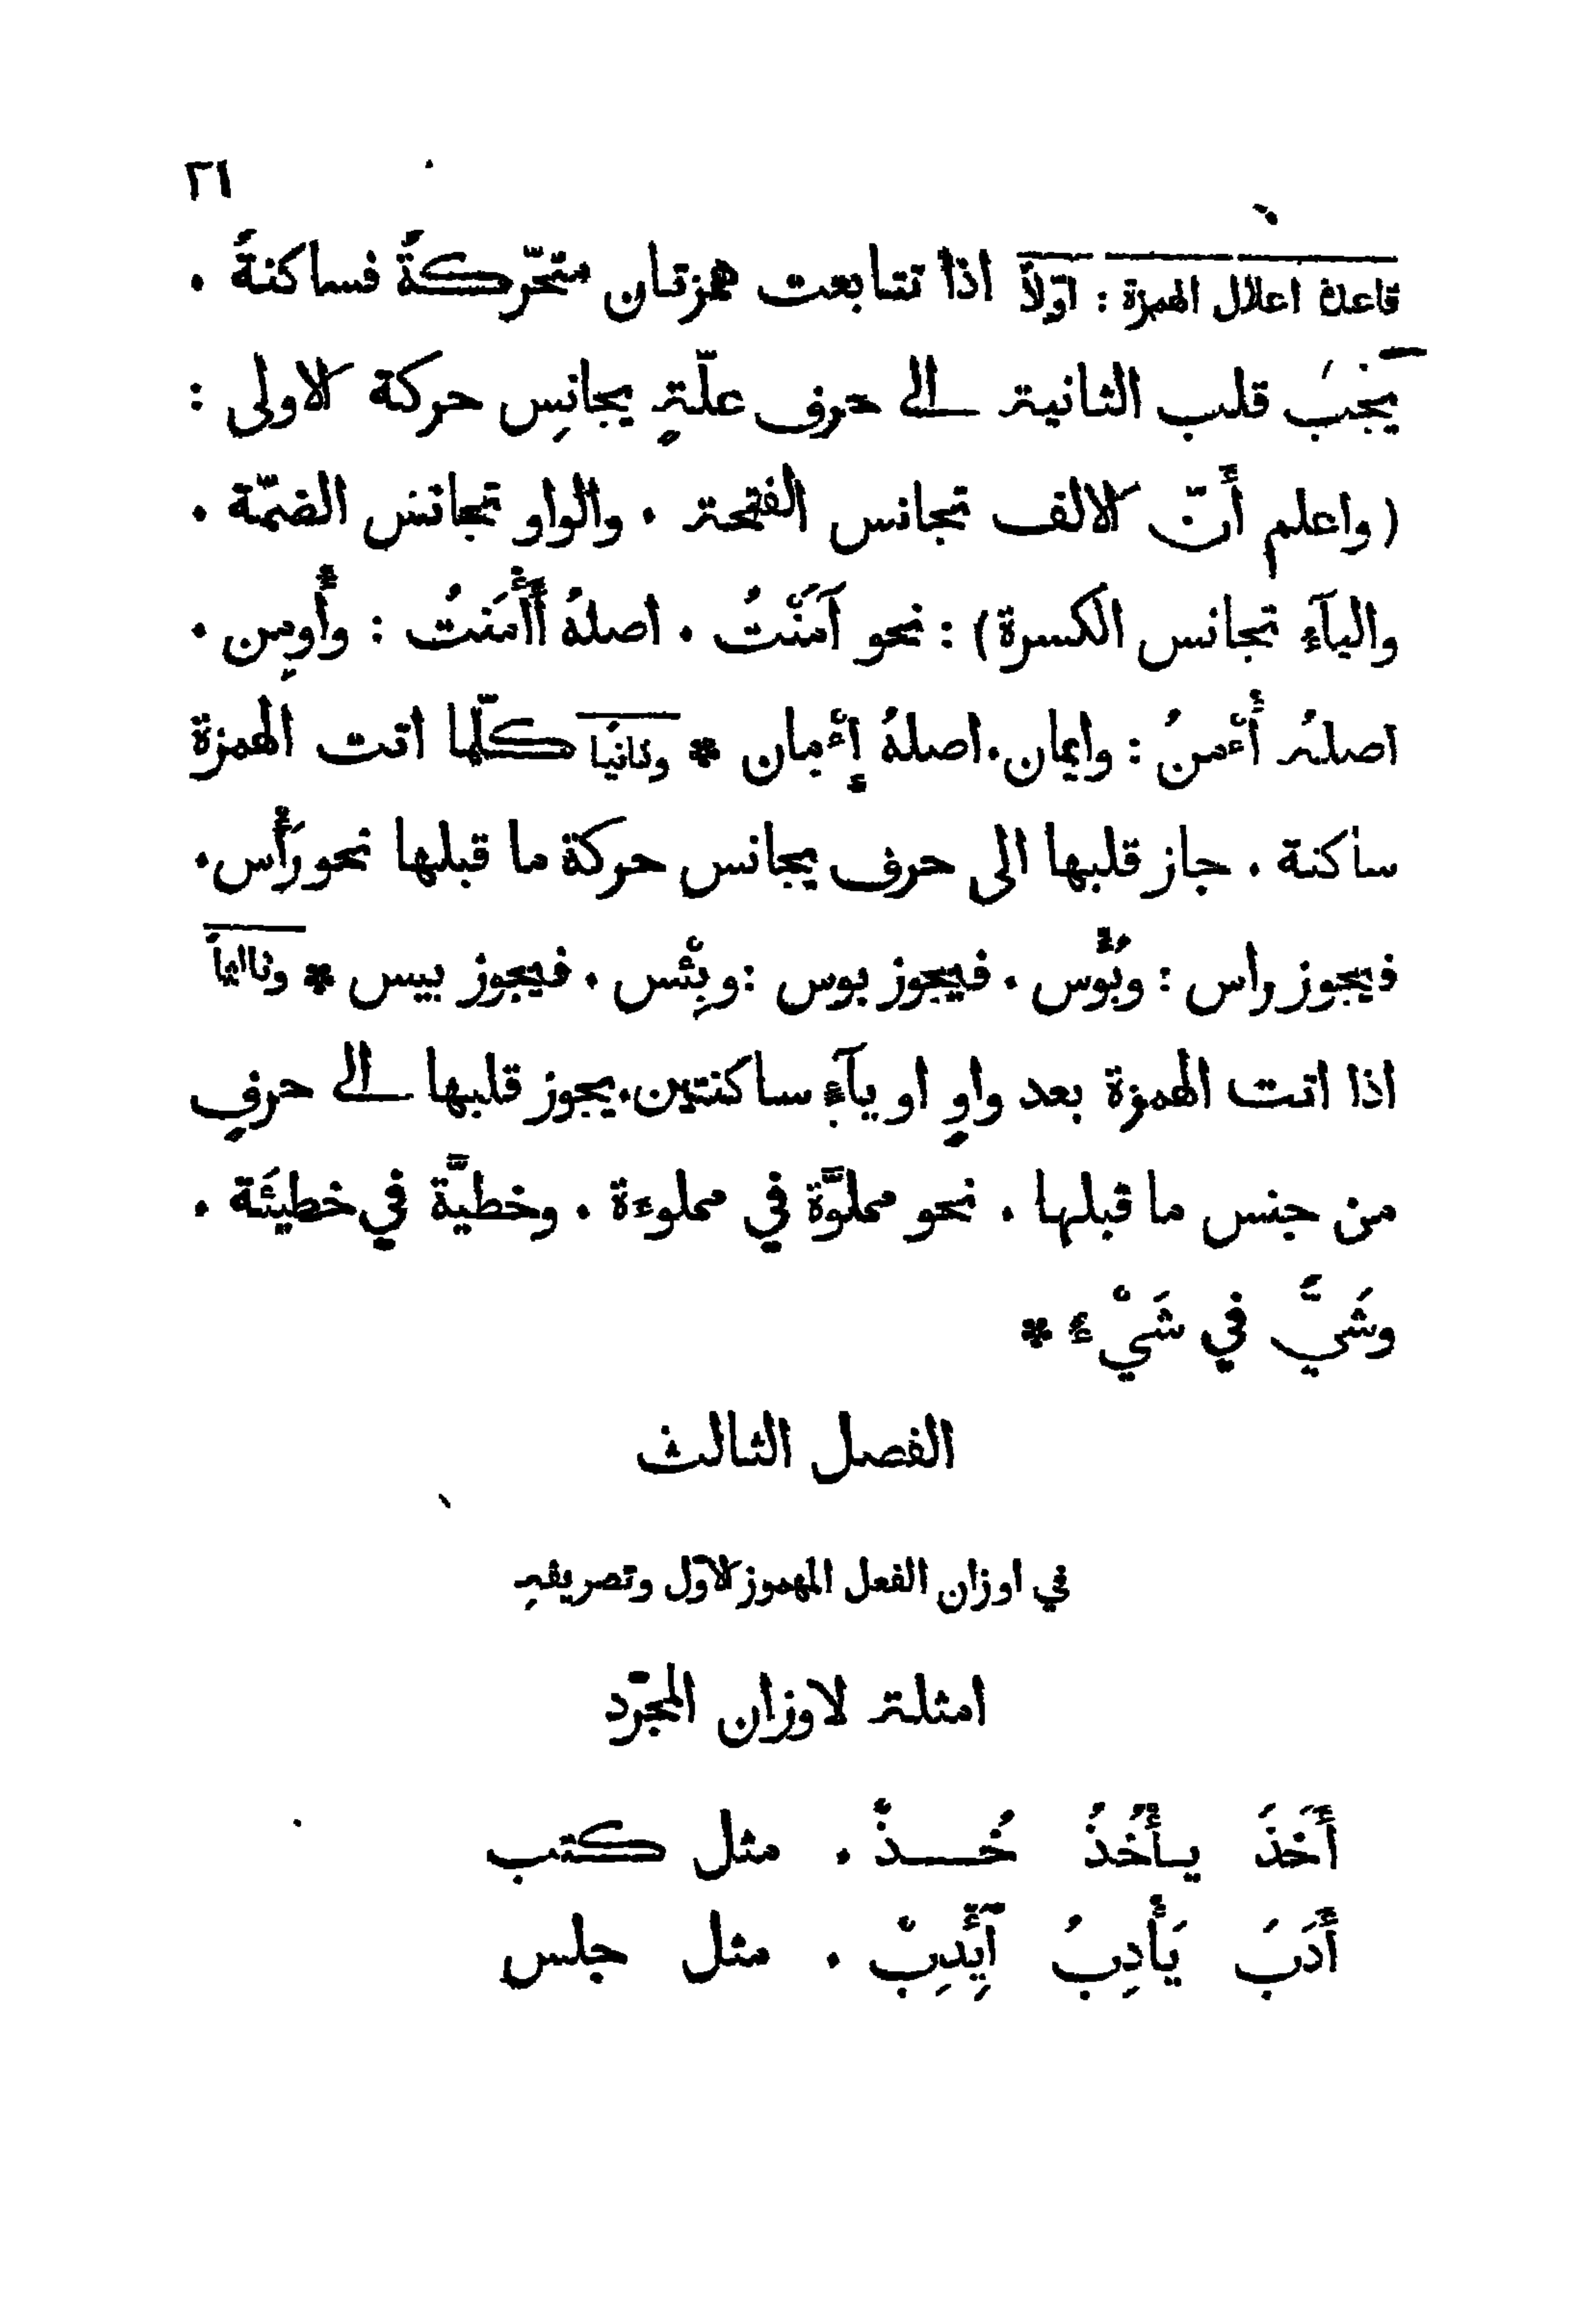 ٢٦
قاعدة اعلال الهمزة : اوّلاً اذا تتابعت همزتان متحرّكةٌ فساكنةٌ .
يجبُ قلب الثانية الى حرف علّةٍ يجانِس حركة الاولى :
( واعلم أَنّ الالف تجانس الفتحة . والواو تجانس الضمّة .
واليآء تجانس الكسرة ) : نحو آمَنْتُ . اصلهُ أَأْمَنتُ : وأُومِن .
اصلهُ أُءْمنُ : وايمان . اصلهُ إِءْمان * وثانيًا كلّما اتت الهمزة
ساكنة . جاز قلبها الى حرف يجانس حركة ما قبلها نحو رَأْس .
فيجوز راس : وبُؤْس . فيجوز بوس : وبِئْس . فيجوز بيس * وثالثاً
اذا اتت الهمزة بعد واوٍ او يآءٍ ساكنتين . يجوز قلبها الى حرفٍ
من جنس ما قبلها . نحو مملوَّة في مملوءة . وخطيَّة في خطيئَة .
وشَيّ في شَيْء *
الفصل الثالث
في اوزان الفعل المهموز الاوّل وتصريفهِ
امثلة لاوزان المجرّد
أَخَذَ يـأْخُذُ خُــذْ . مثل كتب
أَدَبَ يَأْدِبُ آئِدِبْ . مثل جلس